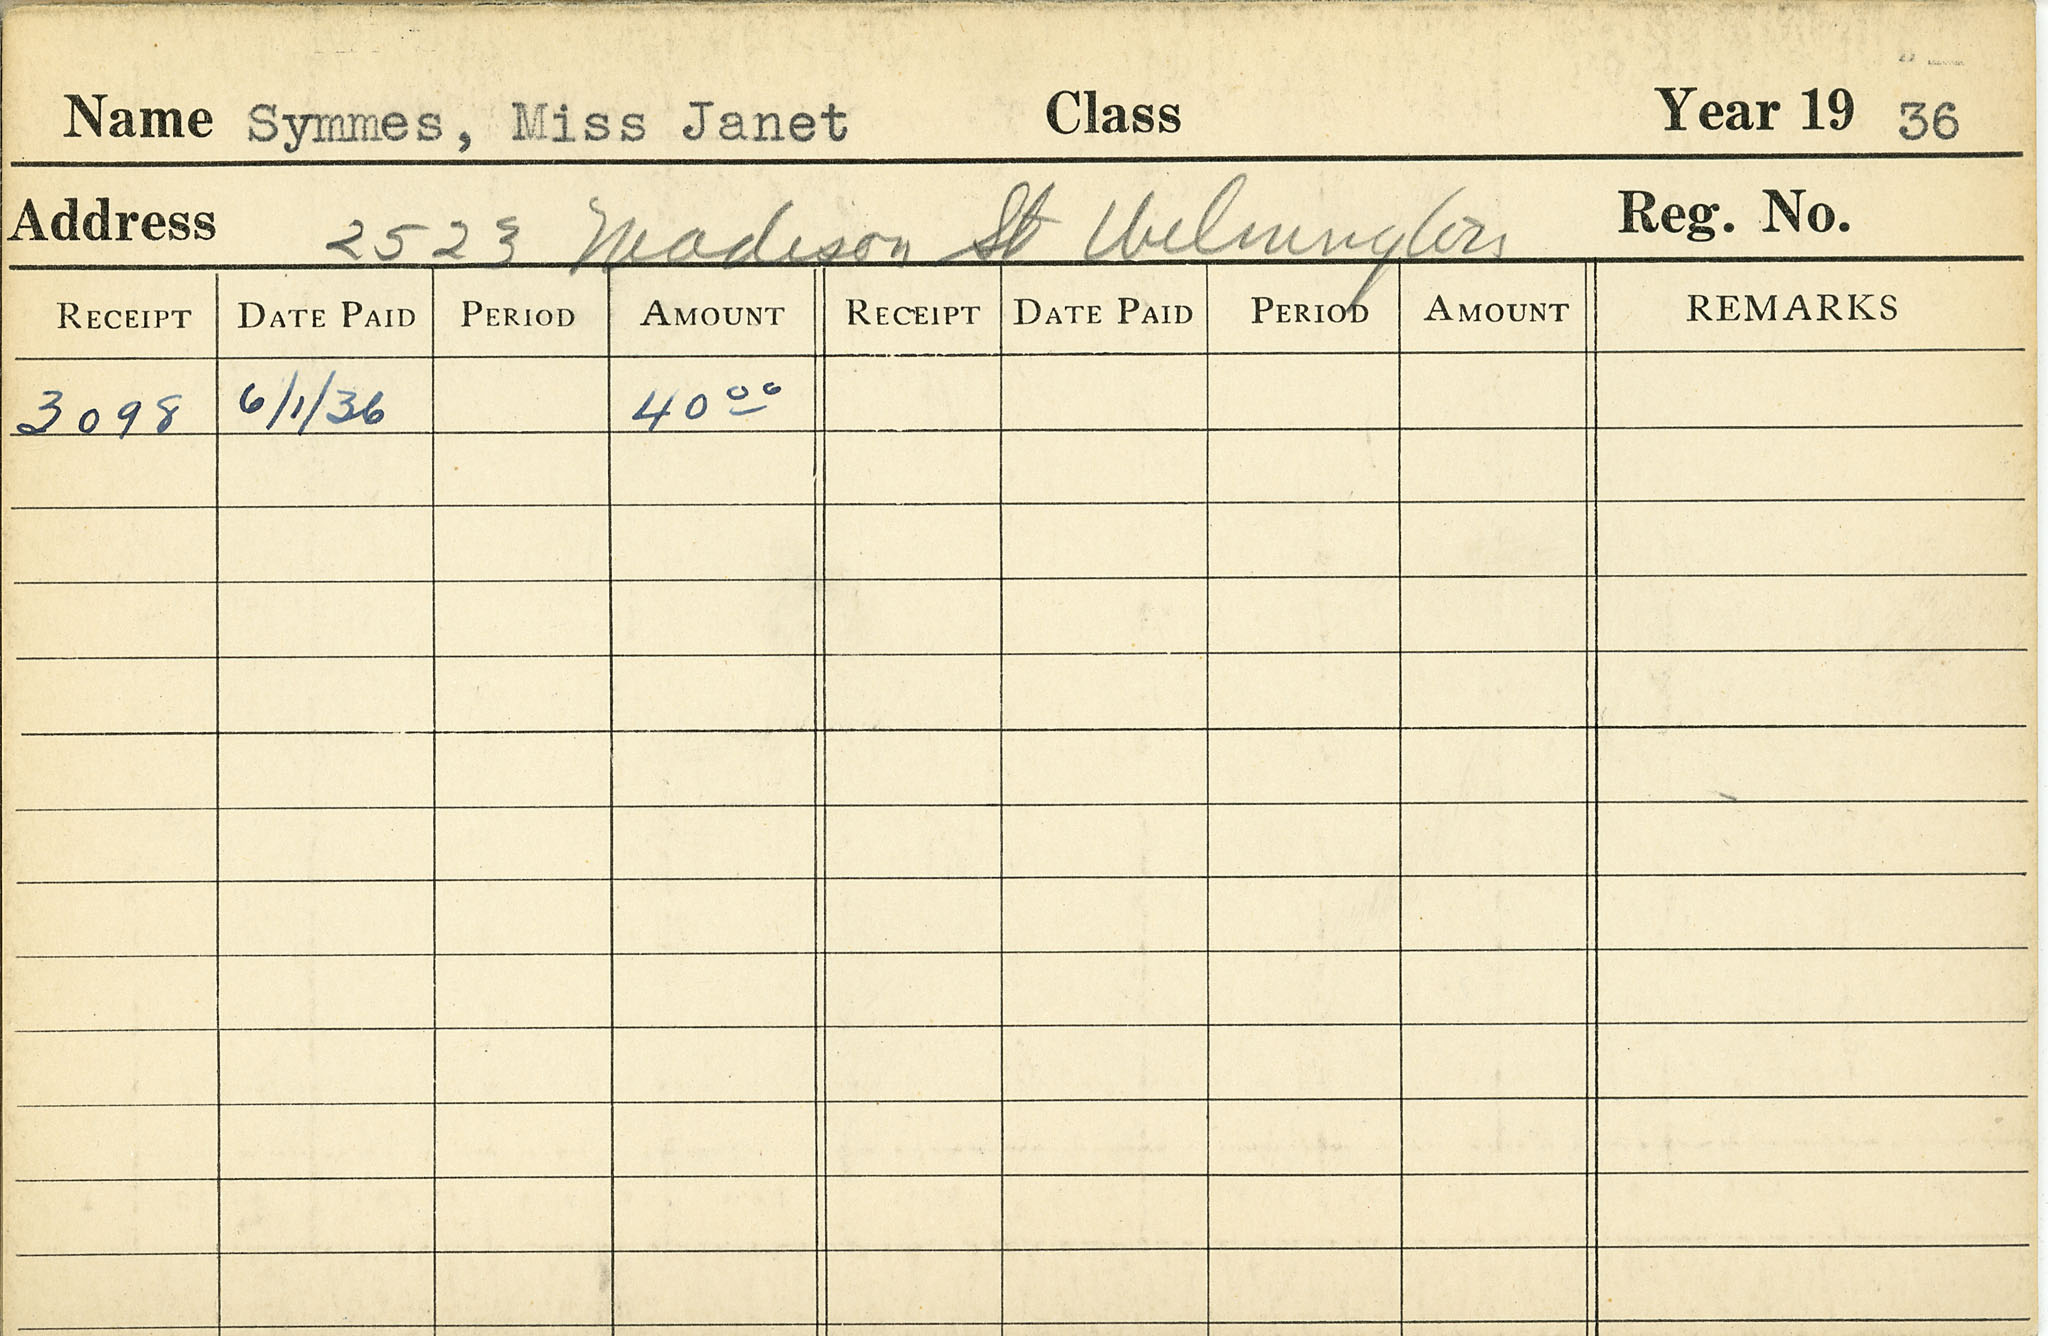 Name Symmes, Miss Janet Class Year 19 36
Address 2523 Madison St Wilmington Reg. No.
RECEIPT DATE PAID PERIOD AMOUNT RECEIPT DATE PAID PERIOD AMOUNT REMARKS
3098 6/1/36 40 00